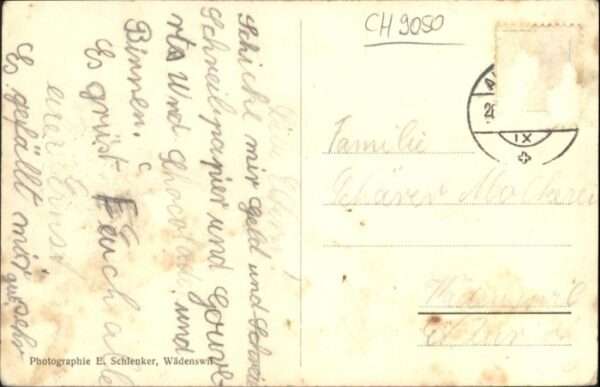 CH 9050
Schicke mir Geld und
Schreibpapier und Couve
rts Und Schocolad und
Binnen.
Es grüst Euch alle
euer Ernst
Es gefällt mir gut sehr
Familie
Schärer Molkerei
Wädenswil
IX
Photographie E. Schlenker, Wädenswil